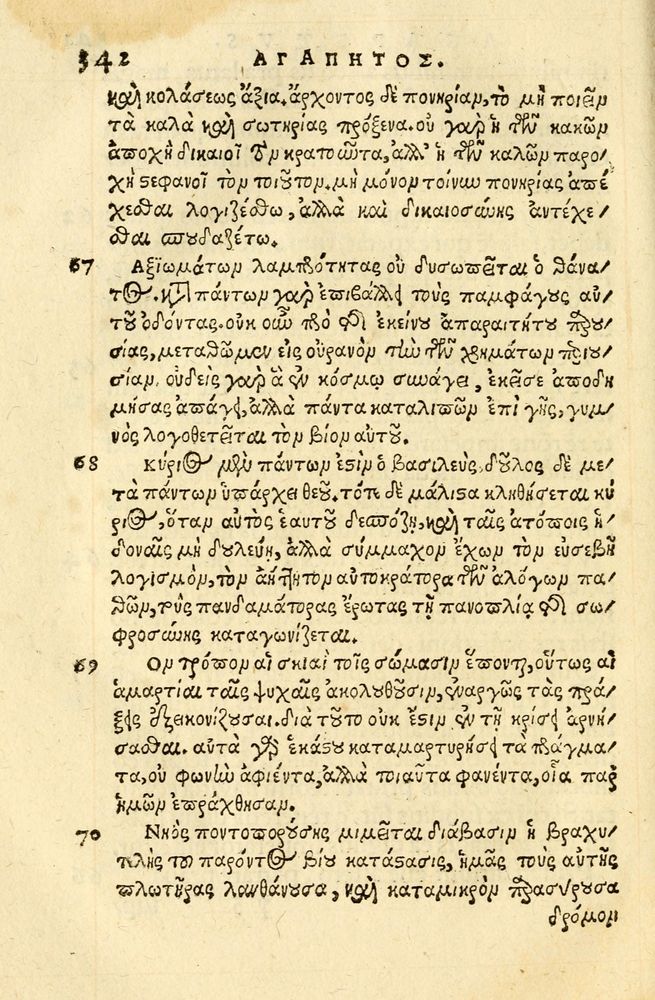 342 ΑΓΑΠΗΤΟΣ.
καὶ κολάσεως ἄξια. ἄρχοντος δὲ πονηρίαν, τὸ μὴ ποιεῖν
τὰ καλὰ καὶ σωτηρίας πρόξενα. οὐ γὰρ ἡ τῶν κακῶν
ἀποχὴ δικαιοῖ τὸν κρατοῦντα, ἀλλ' ἡ τῶν καλῶν παρο/
χὴ στεφανοῖ τὸν τοιοῦτον. μὴ μόνον τοίνυν πονηρίας ἀπέ
χεσθαι λογιζέσθω, ἀλλὰ καὶ δικαιοσύνης ἀντέχε/
σθαι σπουδαζέτω.
67 Ἀξιωμάτων λαμπρότητας οὐ δυσωπεῖται ὁ θάνα/
τος. κατὰ πάντων γὰρ ἐπιβάλλει τοὺς παμφάγους αὐ/
τοῦ ὀδόντας. οὐκ οὖν πρὸ τῆς ἐκείνου ἀπαραιτήτου παρου/
σίας, μεταθῶμεν εἰς οὐρανὸν τὴν τῶν χρημάτων περιου/
σίαν. οὐδεὶς γὰρ ἃ ἐν κόσμῳ συνάγει, ἐκεῖσε ἀποδη
μήσας ἀπάγει, ἀλλὰ πάντα καταλιπὼν ἐπὶ γῆς, γυμ/
νὸς λογοθετεῖται τὸν βίον αὐτοῦ.
68 Κύριος μὲν πάντων ἐστὶν ὁ βασιλεύς, δοῦλος δὲ με/
τὰ πάντων ὑπάρχει θεοῦ. τότε δὲ μάλιστα κληθήσεται κύ
ριος, ὅταν αὐτὸς ἑαυτοῦ δεσπόζῃ, καὶ ταῖς ἀτόποις ἡ/
δοναῖς μὴ δουλεύῃ, ἀλλὰ σύμμαχον ἔχων τὸν εὐσεβῆ
λογισμόν, τὸν ἀήττητον αὐτοκράτορα τῶν ἀλόγων πα/
θῶν, τοὺς πανδαμάτορας ἔρωτας τῇ πανοπλίᾳ τῆς σω/
φροσύνης καταγωνίζεται.
69 Ὃν τρόπον αἱ σκιαὶ τοῖς σώμασιν ἕπονται, οὕτως αἱ
ἁμαρτίαι ταῖς ψυχαῖς ἀκολουθοῦσιν, ἐναργῶς τὰς πρά/
ξεις ἐξεικονίζουσαι. διὰ τοῦτο οὐκ ἔστιν ἐν τῇ κρίσει ἀρνή/
σασθαι. αὐτὰ γὰρ ἑκάστου καταμαρτυρήσει τὰ πράγμα/
τα, οὐ φωνὴν ἀφιέντα, ἀλλὰ τοιαῦτα φανέντα, οἷα παρ'
ἡμῶν ἐπράχθησαν.
70 Νηὸς ποντοπορούσης μιμεῖται διάβασιν ἡ βραχυ/
τελὴς τοῦ παρόντος βίου κατάστασις, ἡμᾶς τοὺς αὐτῆς
πλωτῆρας λανθάνουσα, καὶ καταμικρὸν παρασύρουσα
δρόμον